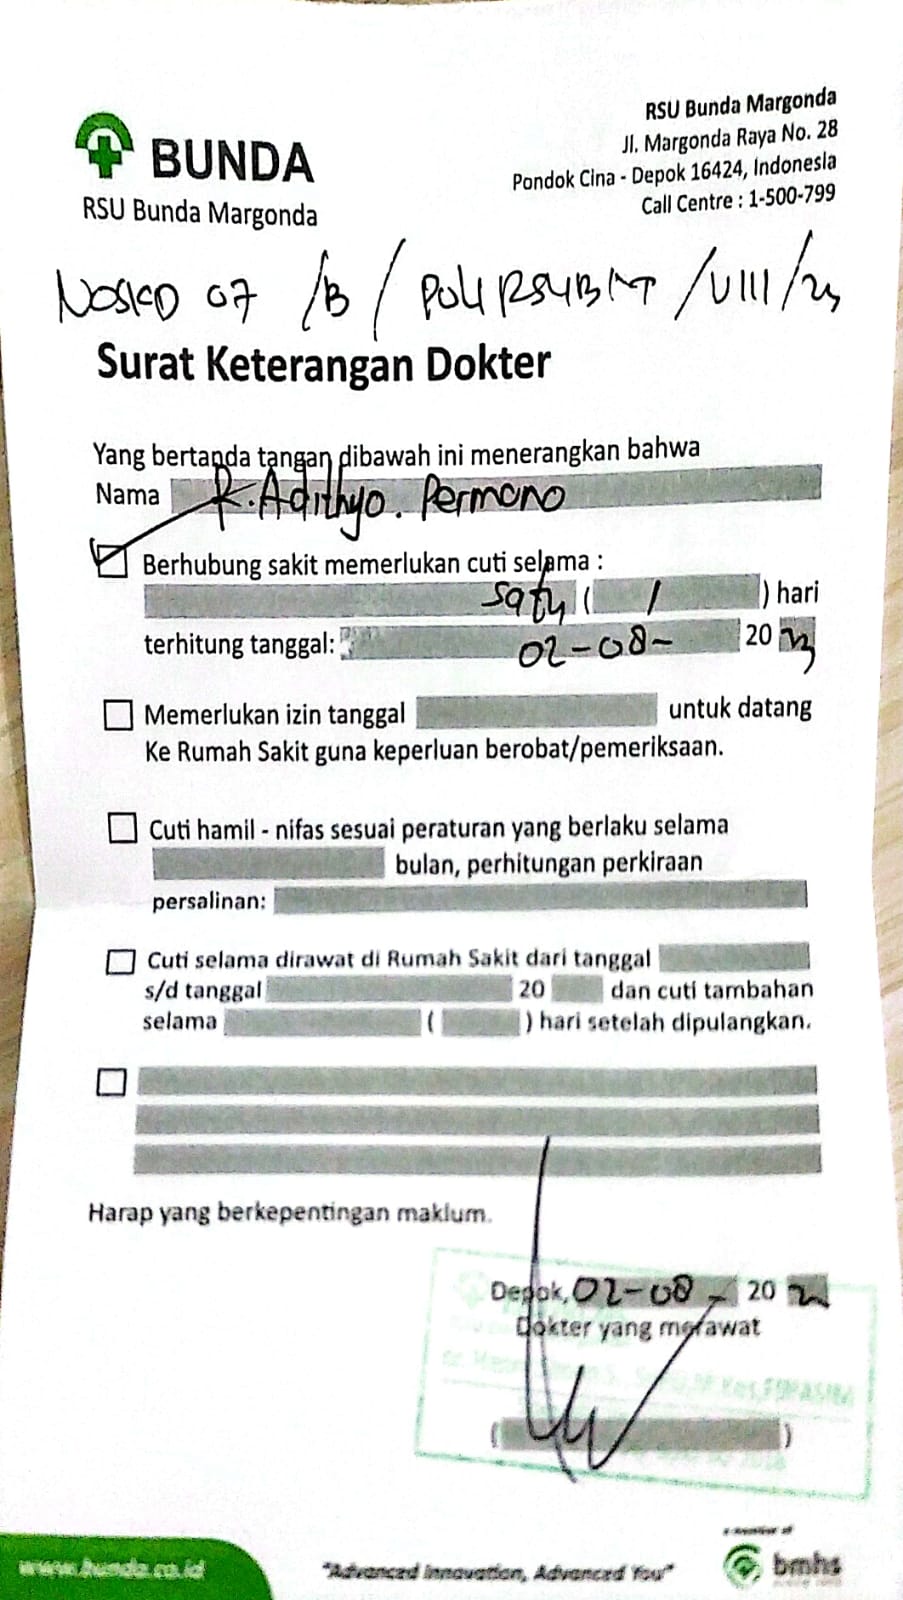 BUNDA
RSU Bunda Margonda
RSU Bunda Margonda
Jl. Margonda Raya No. 28
Pondok Cina - Depok 16424, Indonesia
Call Centre : 1-500-799
07 /B / POLI RSUBMT / VIII / 23
Surat Keterangan Dokter
Yang bertanda tangan dibawah ini menerangkan bahwa
Nama R. Adithyo. Permono
Berhubung sakit memerlukan cuti selama :
Satu ( 1 ) hari
terhitung tanggal: 02-08- 20 23
Memerlukan izin tanggal untuk datang
Ke Rumah Sakit guna keperluan berobat/pemeriksaan.
Cuti hamil - nifas sesuai peraturan yang berlaku selama
bulan, perhitungan perkiraan
persalinan:
Cuti selama dirawat di Rumah Sakit dari tanggal
s/d tanggal 20 dan cuti tambahan
selama ( ) hari setelah dipulangkan.
Harap yang berkepentingan maklum.
Depok, 02-08- 20 23
Dokter yang merawat
( )
www.bunda.co.id
"Advanced Innovation, Advanced You"
a member of
bmhs